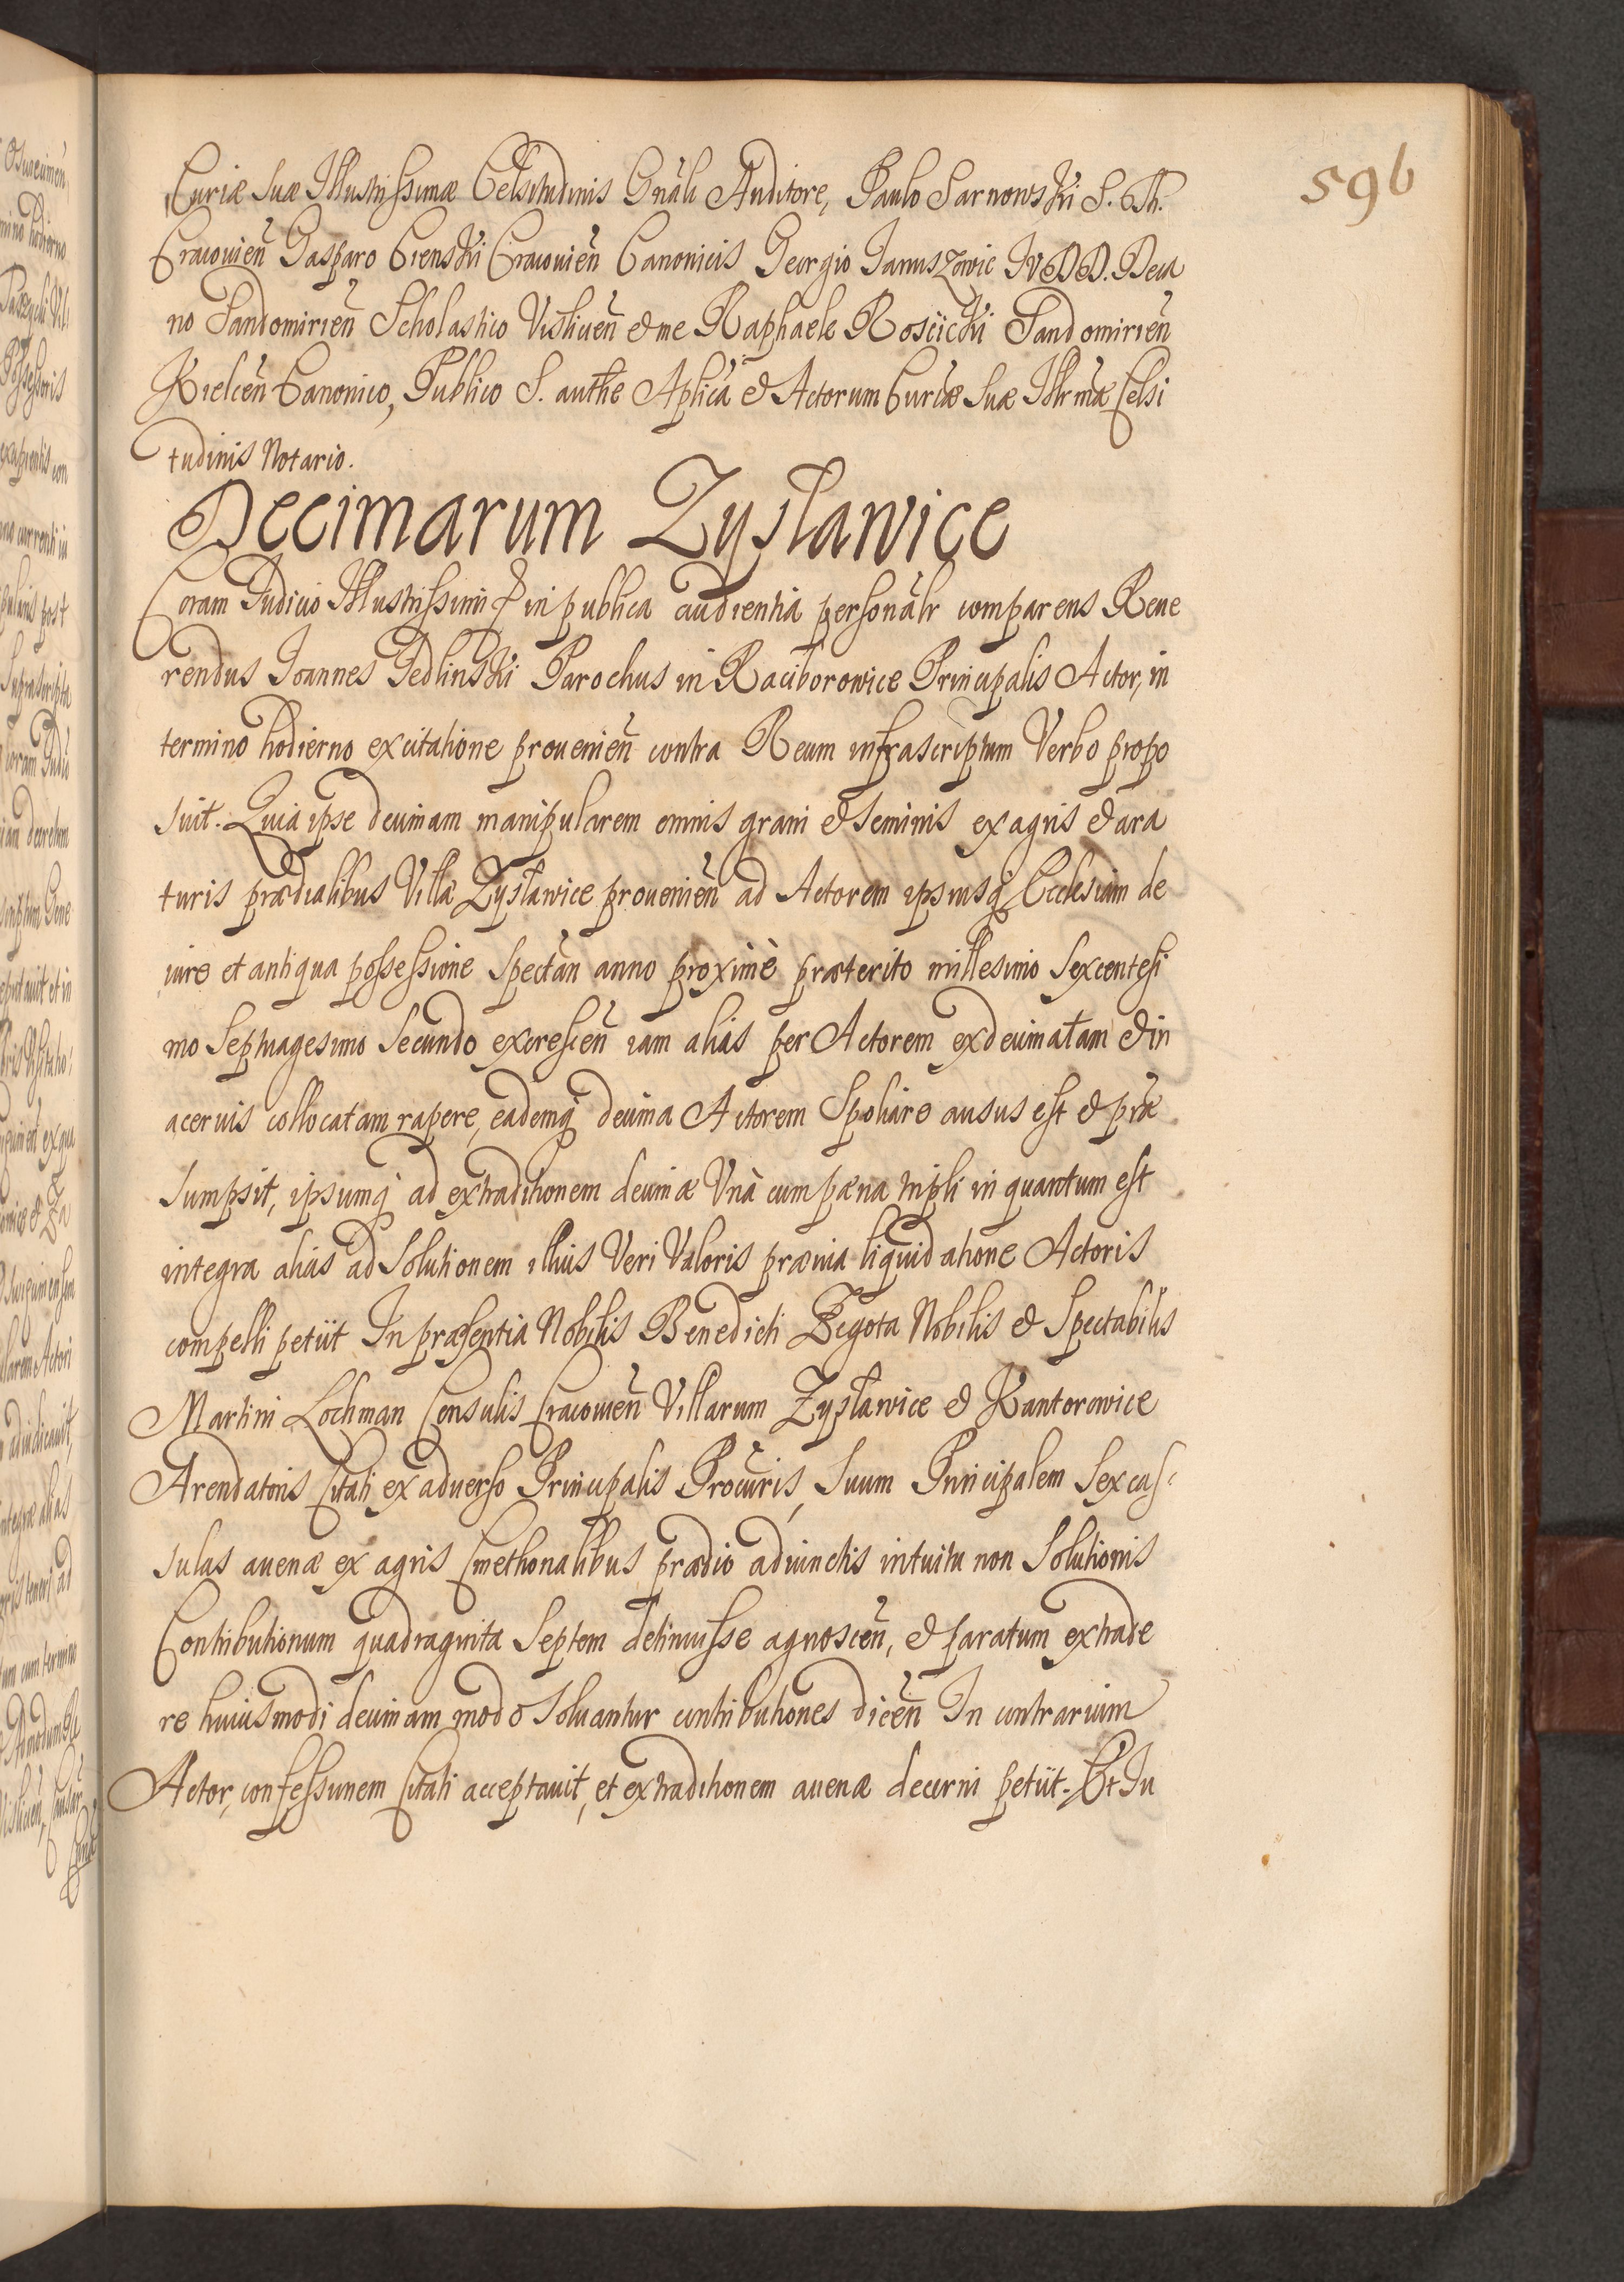 596
Curiæ suæ Illustrissimæ Celsitudinis Gnāli Auditore, Paulo Sarnowski S. Th.
Cracovien̄ Gasparo Cienski Cracovien̄ Canonicis Georgio Januszowic IVDD. Deca
no Sandomirien̄ Scholastico Visliuen̄ & me Raphaele Rosciicki Sandomirien̄
Kielcen̄ Canonico, Publico S. authe Aplica & Actorum Curiæ suæ Illrmæ Celsi
tudinis Notario.
Decimarum Zysławice
Coram Judicio Illustrissimi & in publica audientia personālr comparens Reue
rendus Joannes Jedlinski Parochus in Raciborowice Principalis Actor, in
termino hodierno ex citatione prouenien̄ contra Reum infrascriptum Verbo propo
suit. Quia ipse decimam manipularem omnis grani & seminis ex agris & ara
turis prædialibus Villæ Zysławice prouenien̄ ad Actorem ipsiusq Ecclesiam de
iure et antiqua possessione spectān anno proximè præterito millesimo sexcentesi
mo septuagesimo secundo excrescen̄ iam alias per Actorem exdecimatam & in
aceruis collocatam rapere, eademq decima Actorem spoliare ausus est & præ
sumpsit, ipsumq ad extraditionem decimæ Vnà cum pæna tripli in quantum est
integra alias ad solutionem illius Veri Valoris præuia liquidatione Actoris
compelli petiit In præsentia Nobilis Benedicti Zegota Nobilis & Spectabilis
Martini Lochman Consulis Cracouien̄ Villarum Zysławice & Kantorowice
Arendatoris Citati ex aduerso Principalis Procuris, suum Principalem sex cas-
sulas auenæ ex agris Cmethonalibus prædio adiunctis intuitu non solutionis
Contributionum quadraginta septem detinuisse agnoscen̄, & paratum extrade
re huiusmodi decimam modo soluantur contributiones dicen̄ In contrarium
Actor, confessionem Citati acceptauit, et extraditionem auenæ decerni petiit. Et Ju